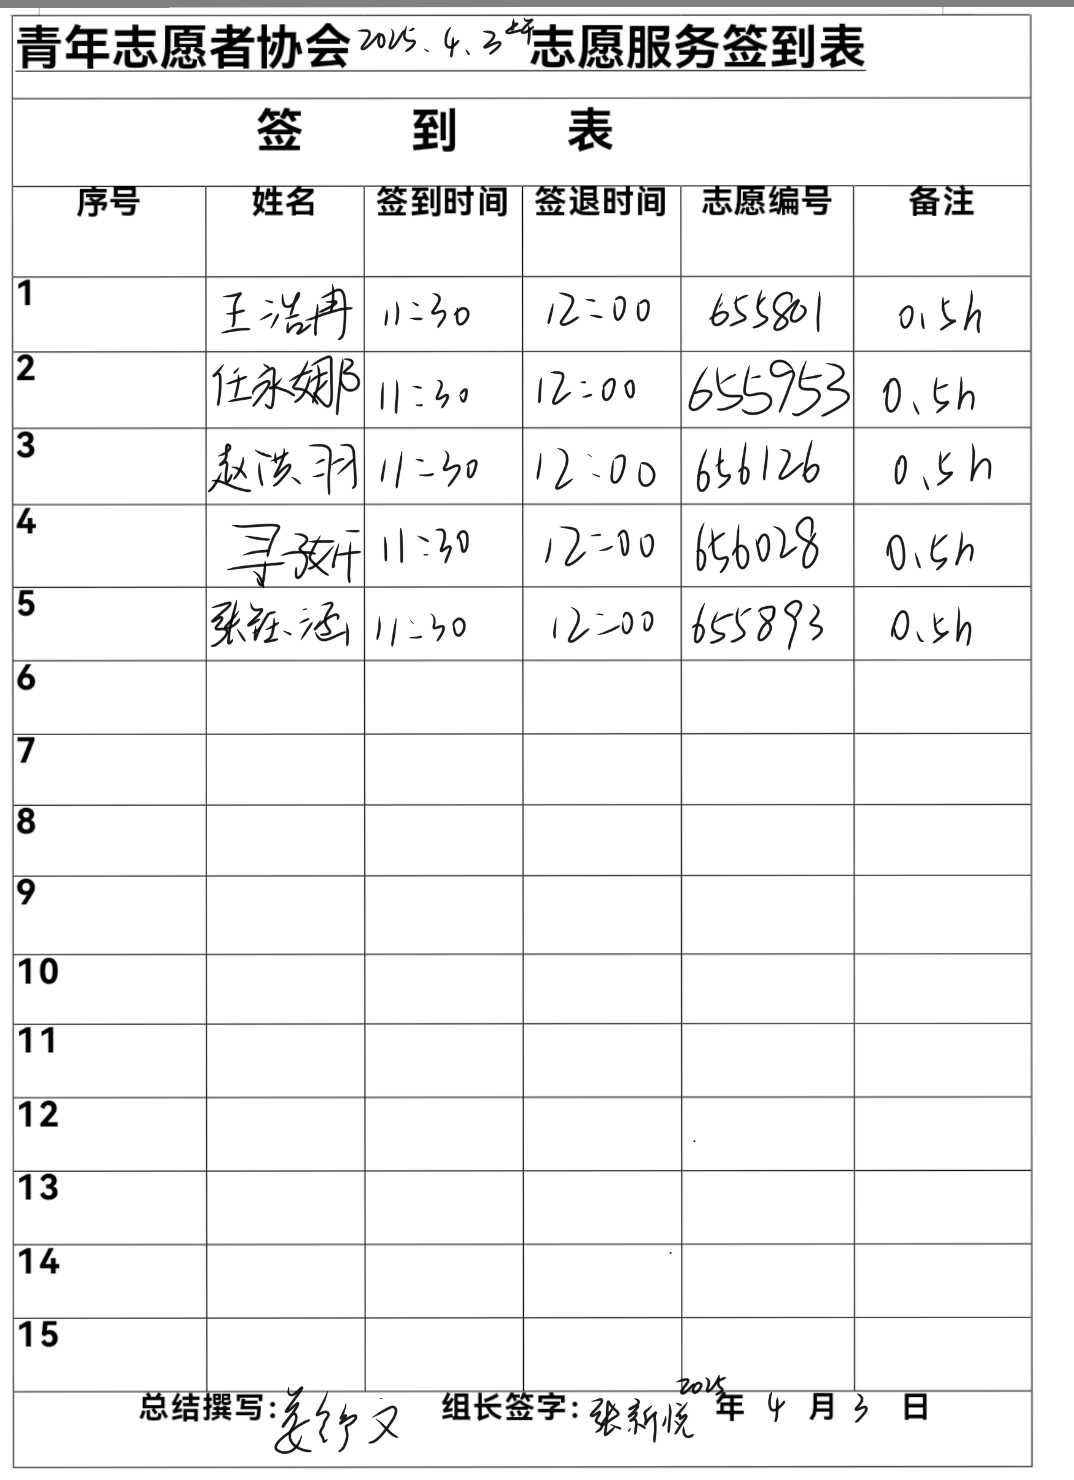 青年志愿者协会2025.4.3上午志愿服务签到表
签 到 表
序号 姓名 签到时间 签退时间 志愿编号 备注
1 王浩冉 11:30 12:00 655801 0.5h
2 任永娜 11:30 12:00 655953 0.5h
3 赵洪羽 11:30 12:00 656126 0.5h
4 寻 11:30 12:00 656028 0.5h
5 张钰涵 11:30 12:00 655893 0.5h
6
7
8
9
10
11
12
13
14
15
总结撰写:姜舒文 组长签字:张新悦 2025年4月3日